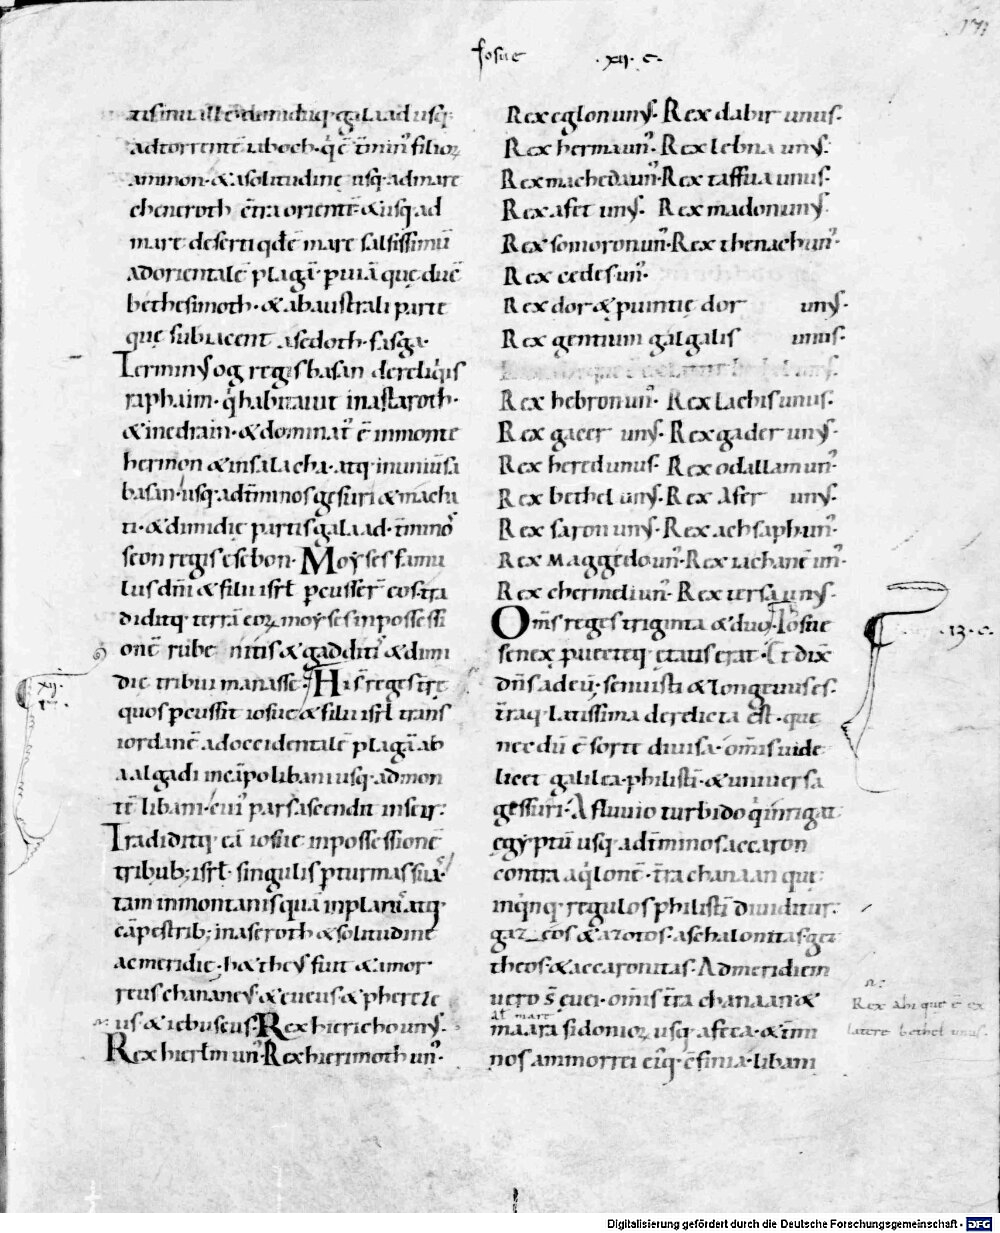 Iosue .xii. c.
171
tis in ualle dimidieq; galaad usq;
ad torrentē iaboch· q̇ ē t̄min' filioꝝ
ammon· & a solitudine usq; ad mare
cheneroth c̄tra orientē· & usq; ad
mare deserti qđ ē mare salsissimū
ad orientalē plagā· p uiā que ducē
bethesimoth· & ab australi parte
que subiacent asedoth· fasga·
Terminus og regis basan de reliq̇is
raphaim· q̇ habitauit in astaroth·
& in edrain· & dominat' ē in monte
hermon & in salacha· atq; in uniūsa
basan· usq; ad t̄minos gesuri & machа
ti· & dimidie partis galaad· t̄mino'
seon regis esebon· Moyses famu
lus dn̄i & filii isrł pcusser̄ eos· tra
diditq; terrā eoꝝ moyses in possessi
onē rube nitis & gadditi & dimi
die tribui manasse· Hi s̄ reges t̄re
quos pcussit iosue & filii isrł trans
iordanē ad occidentalē plagā ab
aalgad in cāpo libani usq; ad mon
tē libani· cui' pars ascendit in seir:
Tradiditq; eā iosue in possessionē
tribub; isrł· singulis p turmas suа·
tam in montanis quā in planis atq;
cāpestrib; in aseroth & solitudine
ac meridie· hetheus fuit & amor·
reus chananeus & eueus & phereze
us & iebuseus· Rex hiericho unus·
Rex hierłm un'· Rex hierimoth un'·
xii.
Rex eglon unus· Rex dabir unus·
Rex herma un'· Rex lebna unus·
Rex macheda un'· Rex taffua unus·
Rex afet unus· Rex madon unus·
Rex somoron un'· Rex thenach un'·
Rex cedes un'·
Rex dor & puintie dor unus·
Rex gentium galgalis unus·
Rex hebron un'· Rex Lachis unus·
Rex gacer unus· Rex gader unus·
Rex hered unus· Rex odallam un'·
Rex bethel unus· Rex Afer unus·
Rex saron unus· Rex achsaph un'·
Rex maggedo un'· Rex iachanē un'·
Rex chermeli un'· Rex tersa unus·
Om̄s reges triginta & duo· Iosue
senex puecteq; etatis erat· Et dix̄
dn̄s ad eū; senuisti & longeuus es·
t̄raq; latissima derelicta est· que
necdū ē sorte diuisa· om̄is uide
licet galilea· philistī· & uniuersa
gessuri· A fluuio turbido q̇ inrigat
egyptū usq; ad t̄minos accaron
contra aq̇lonē· t̄ra chanaan que
in q̇nq; regulos philistī diuiditur·
gaz_eos & azotos· aschalonitas· get
theos· & accaronitas· Ad meridiem
uero s̄ euei· om̄is t̄ra chanaan &
maara sidonioꝝ usq; afeca· & t̄mi
nos ammorrei eiq; c̄finia· libani
.13. c.
Rex ahi que ē ex
latere bethel unus.